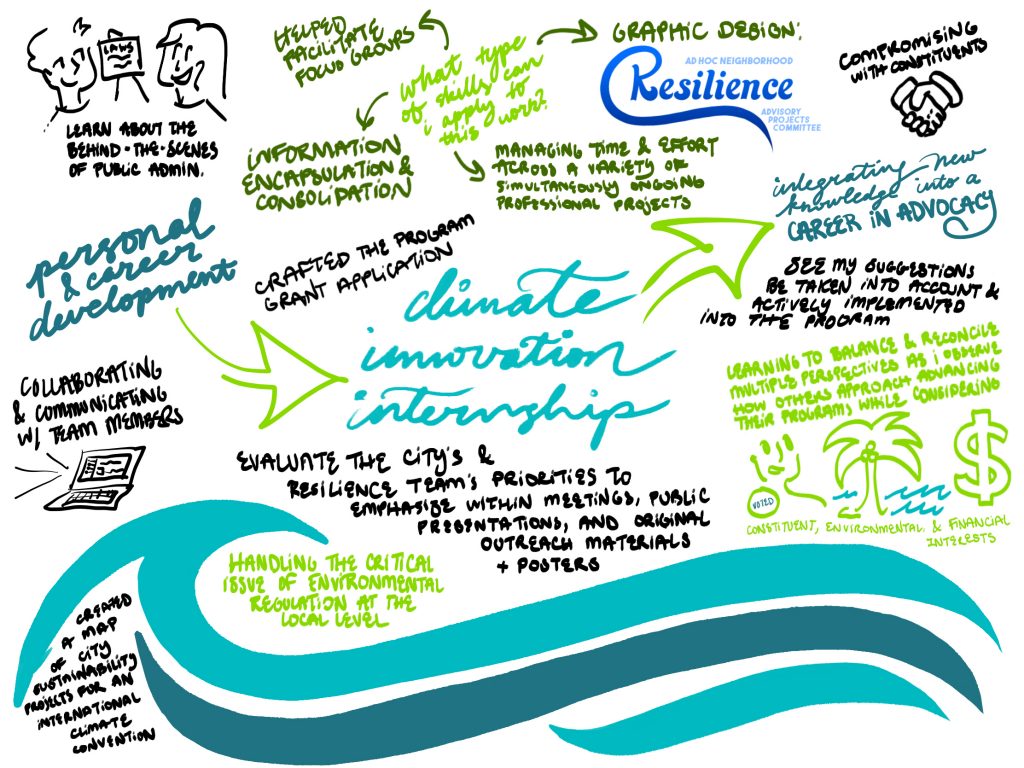 LAWS
LEARN ABOUT THE
BEHIND-THE-SCENES
OF PUBLIC ADMIN.
HELPED
FACILITATE
FOCUS GROUPS
what type
of skills can
i apply to
this work?
GRAPHIC DESIGN:
AD HOC NEIGHBORHOOD
Resilience
ADVISORY
PROJECTS
COMMITTEE
COMPROMISING
WITH CONSTITUENTS
INFORMATION
ENCAPSULATION &
CONSOLIDATION
MANAGING TIME & EFFORT
ACROSS A VARIETY OF
SIMULTANEOUSLY ONGOING
PROFESSIONAL PROJECTS
integrating new
knowledge into a
CAREER IN ADVOCACY
personal
& career
development
CRAFTED THE PROGRAM
GRANT APPLICATION
climate
innovation
internship
SEE MY SUGGESTIONS
BE TAKEN INTO ACCOUNT &
ACTIVELY IMPLEMENTED
INTO THE PROGRAM
COLLABORATING
& COMMUNICATING
W/ TEAM MEMBERS
LEARNING TO BALANCE & RECONCILE
MULTIPLE PERSPECTIVES AS I OBSERVE
HOW OTHERS APPROACH ADVANCING
THEIR PROGRAMS WHILE CONSIDERING
VOTED
$
CONSTITUENT, ENVIRONMENTAL, & FINANCIAL
INTERESTS
EVALUATE THE CITY'S &
RESILIENCE TEAM'S PRIORITIES TO
EMPHASIZE WITHIN MEETINGS, PUBLIC
PRESENTATIONS, AND ORIGINAL
OUTREACH MATERIALS
+ POSTERS
HANDLING THE CRITICAL
ISSUE OF ENVIRONMENTAL
REGULATION AT THE
LOCAL LEVEL
CREATED
A MAP
OF CITY
SUSTAINABILITY
PROJECTS FOR AN
INTERNATIONAL
CLIMATE
CONVENTION